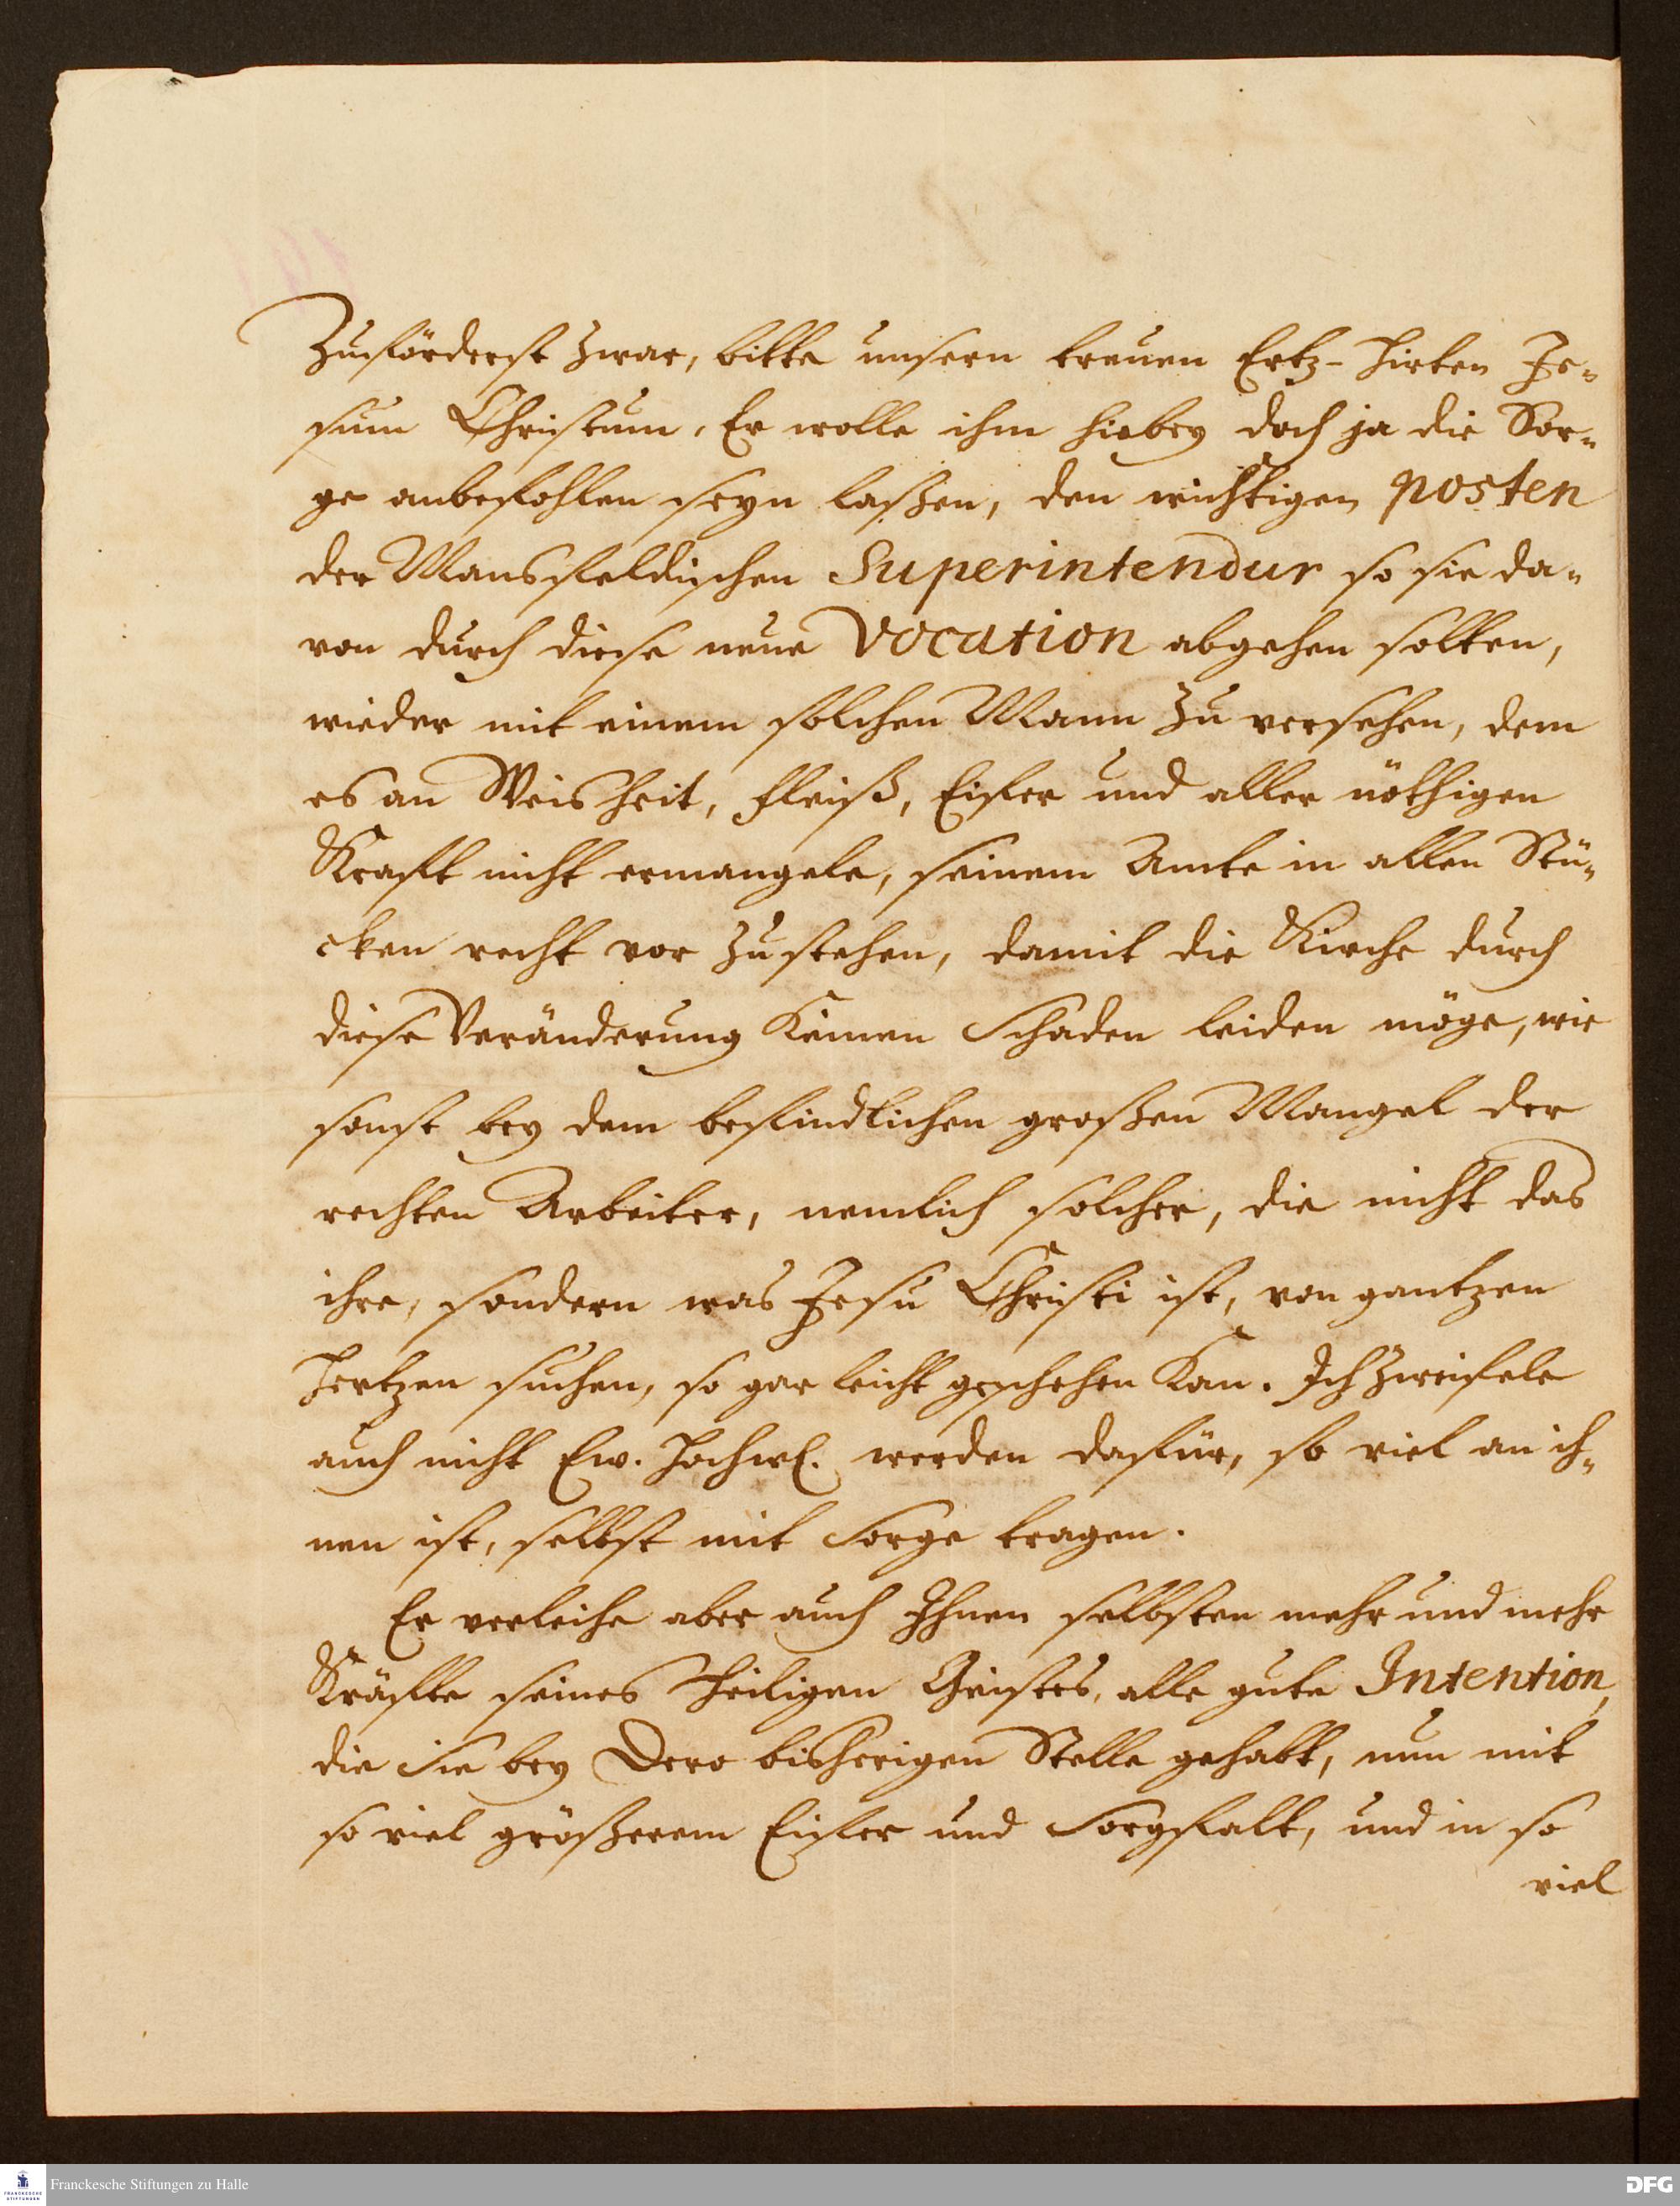 Zuförderst zwar, bitte unsern treuen Ertz-Hirten Je-
sum Christum, Er wolle ihm hiebey doch ja die Sor-
ge anbefohlen seyn laßen, den wichtigen posten
der Mansfeldischen Superintendur so sie da-
von durch diese neue Vocation abgehen solten,
wieder mit einem solchen Mann zu versehen, dem
es an Weisheit, Fleiß, Eifer und aller nöthigen
Krafft nicht ermangele, seinem Amte in allen Stü-
cken recht vor zustehen, damit die Kirche durch
diese Veränderung keinen Schaden leiden möge, wie
sonst bey dem befindlichen großen Mangel der
rechten Arbeiter, nemlich solcher, die nicht das
ihre, sondern was Jesu Christi ist, von gantzen
Hertzen suchen, so gar leicht geschehen kan. Ich zweifele
auch nicht Ew. Hochw. werden dafür, so viel an ih-
nen ist, selbst mit Sorge tragen.
Er verleihe aber auch Ihnen selbsten mehr und mehr
Kräffte seines Heiligen Geistes, alle gute Intention,
die Sie bey Dero bisherigen Stelle gehabt, nun mit
so viel größerem Eifer und Sorgfalt, und in so
viel
Franckesche Stiftungen zu Halle
DFG